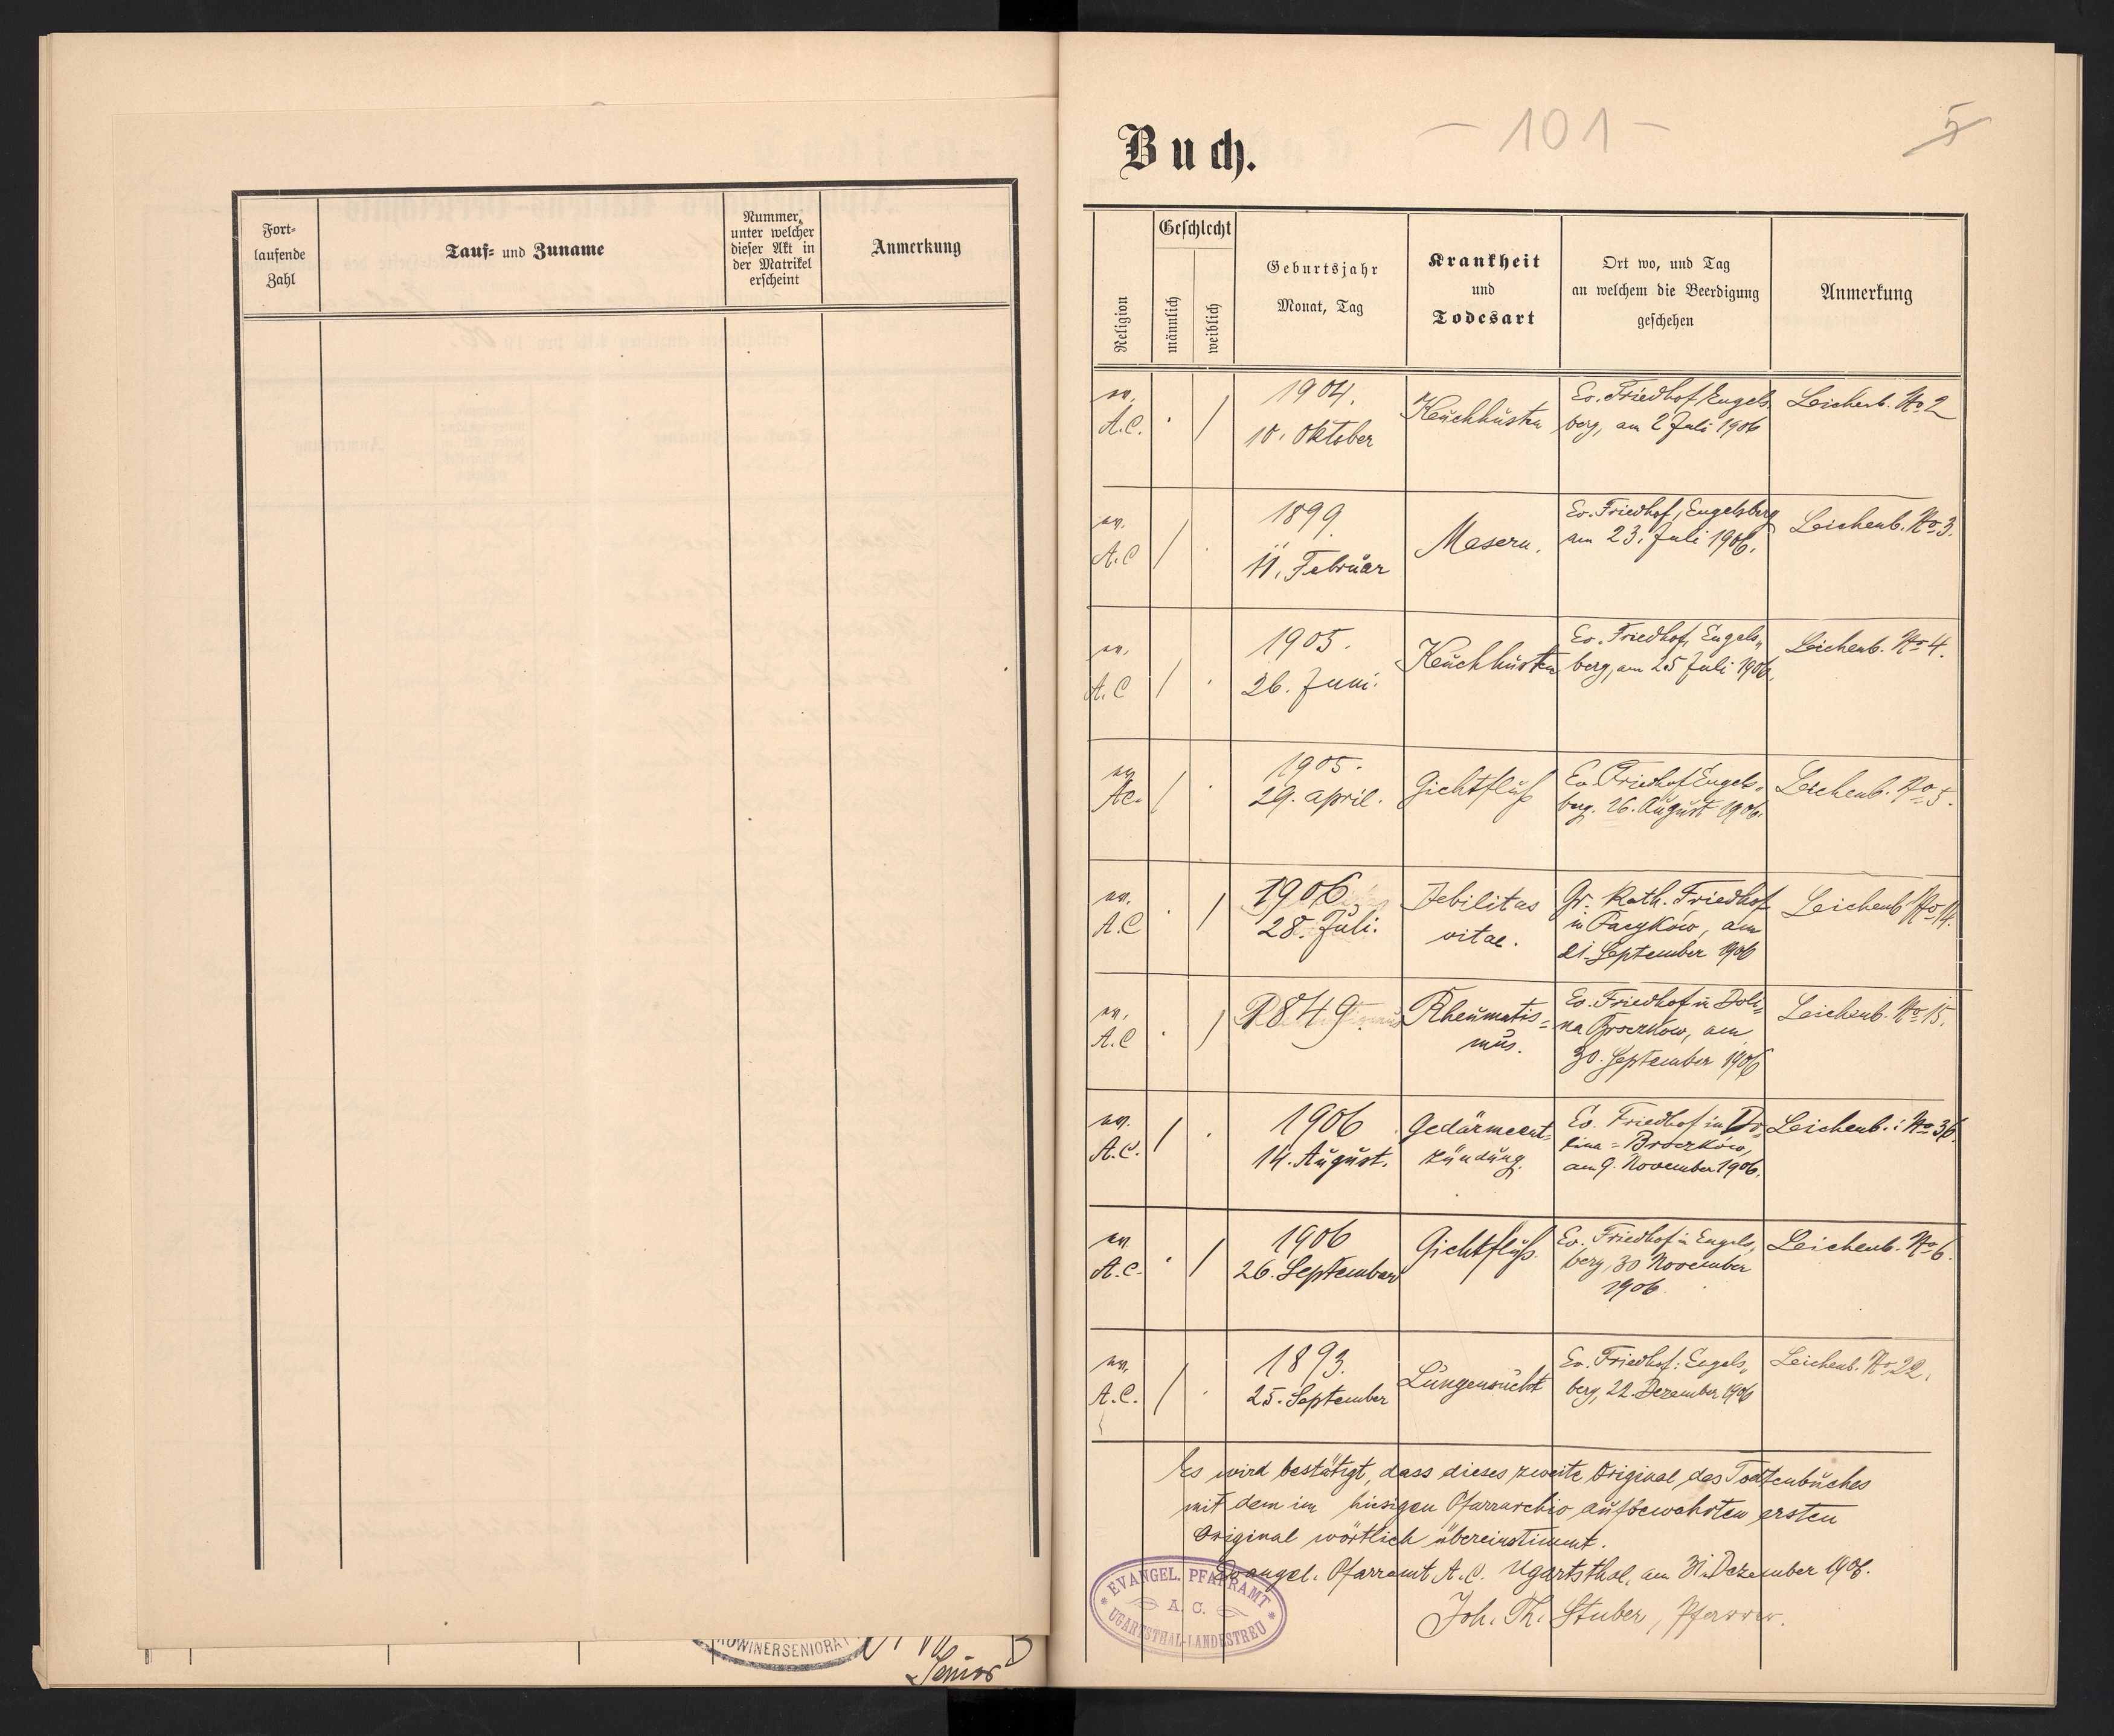 Fort-
laufende
Zahl
Tauf- und Zuname
Nummer,
unter welcher
dieser Akt in
der Matrikel
erscheint
Anmerkung
Senior
Buch.
- 101 -
5
Religion
Geschlecht
männlich
weiblich
Geburtsjahr
Monat, Tag
Krankheit
und
Todesart
Ort wo, und Tag
an welchem die Beerdigung
geschehen
Anmerkung
ev. A.C. · / 1904. 10. Oktober Keuchhusten Ev. Friedhof Engels-
berg, am 2 Juli 1906 Leichenb. No 2
ev. A.C / · 1899. 11. Februar Masern. Ev. Friedhof, Engelsberg
am 23. Juli 1906. Leichenb. No 3.
ev. A.C / · 1905. 26. Juni. Keuchhusten Ev. Friedhof, Engels„
berg, am 25 Juli 1906. Leichenb. No 4.
ev. A.C. / · 1905. 29. April. Gichtfluß Ev. Friedhof Engels-
berg. 26. August 1906. Leichenb. No 5.
ev. A.C · / 1906. 28. Juli. Debilitas
vitae. Gr. Kath. Friedhof
in Pacyków, am
21. September 1906 Leichenb. No 14.
ev. A.C · / 1849. Rheumatis=
mus. Ev. Friedhof in Doli=
na Broczkow, am
30. September 1906 Leichenb. No 15.
ev. A.C. / · 1906 14. August. Gedärment-
zündung. Ev. Friedhof in Do-
lina = Broczków,
am 9. November 1906. Leichenb.: No 36.
ev. A.C. · / 1906 26. September Gichtfluß. Ev. Friedhof in Engels„
berg, 30 November
1906 Leichenb. No 6.
ev. A.C. / · 1893. 25. September Lungensucht Ev. Friedhof: Engels„
berg, 22. Dezember 1906 Leichenb. No 22.
Es wird bestätigt, dass dieses zweite Original des Todtenbuches
mit dem im hiesigen Pfarrarchiv aufbewahrten ersten
Original wörtlich übereinstimmt.
Evangel. Pfarramt A.C. Ugartsthal, am 31. Dezember 1906.
Joh. Th. Stuber, Pfarrer.
EVANGEL. PFARRAMT
A. C.
UGARTSTHAL-LANDESTREU